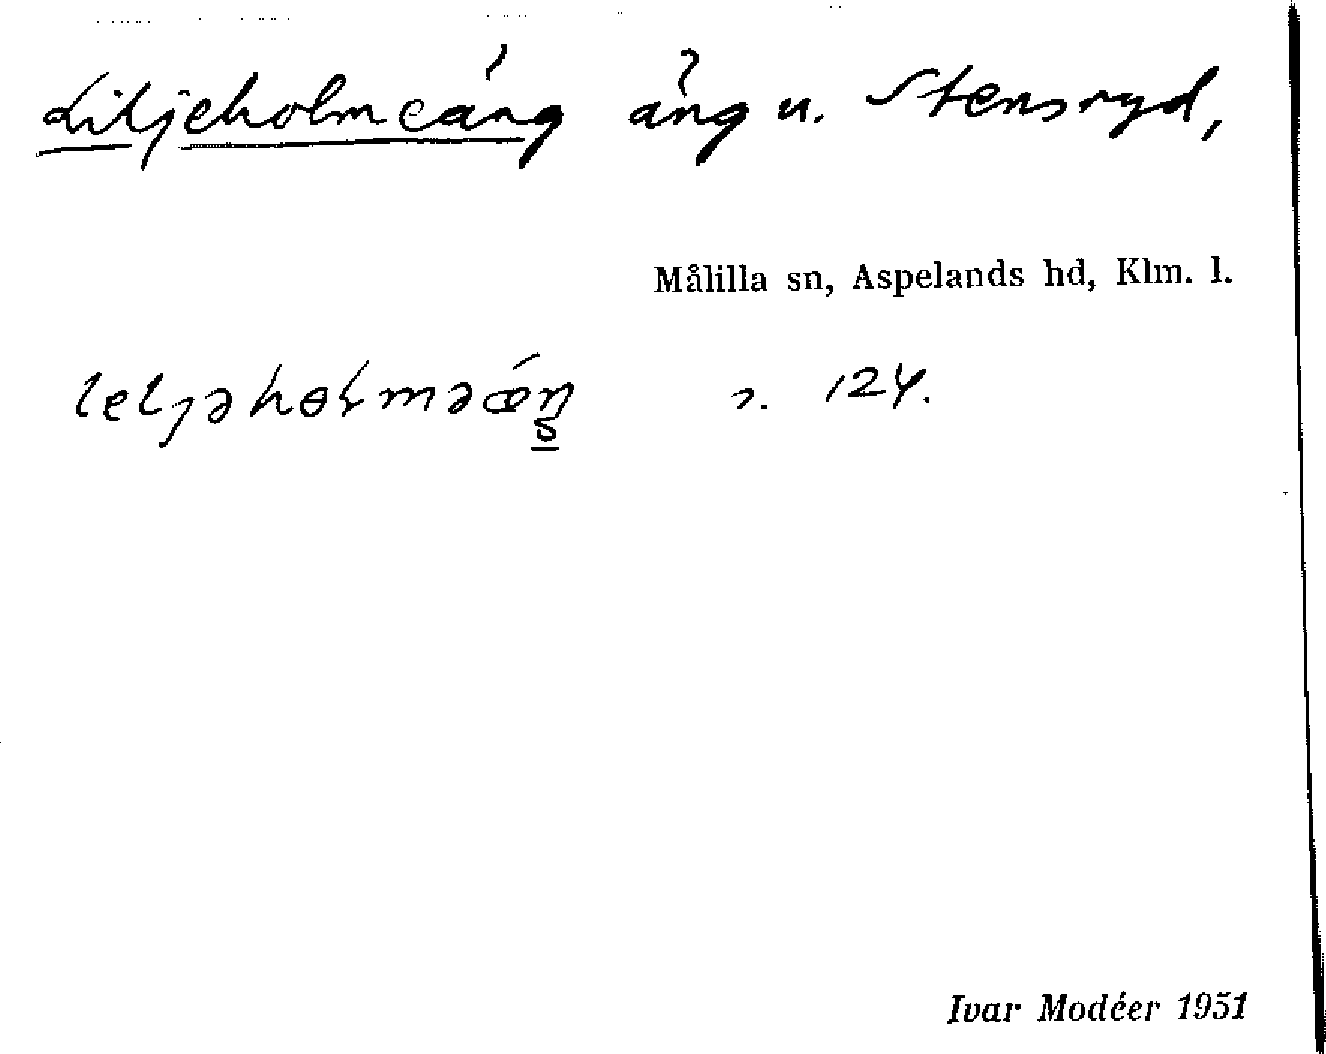 Liljeholmeäng äng u. Stensryd,
Målilla sn, Aspelands hd, Klm. l.
s. 124.
Ivar Modéer 1951